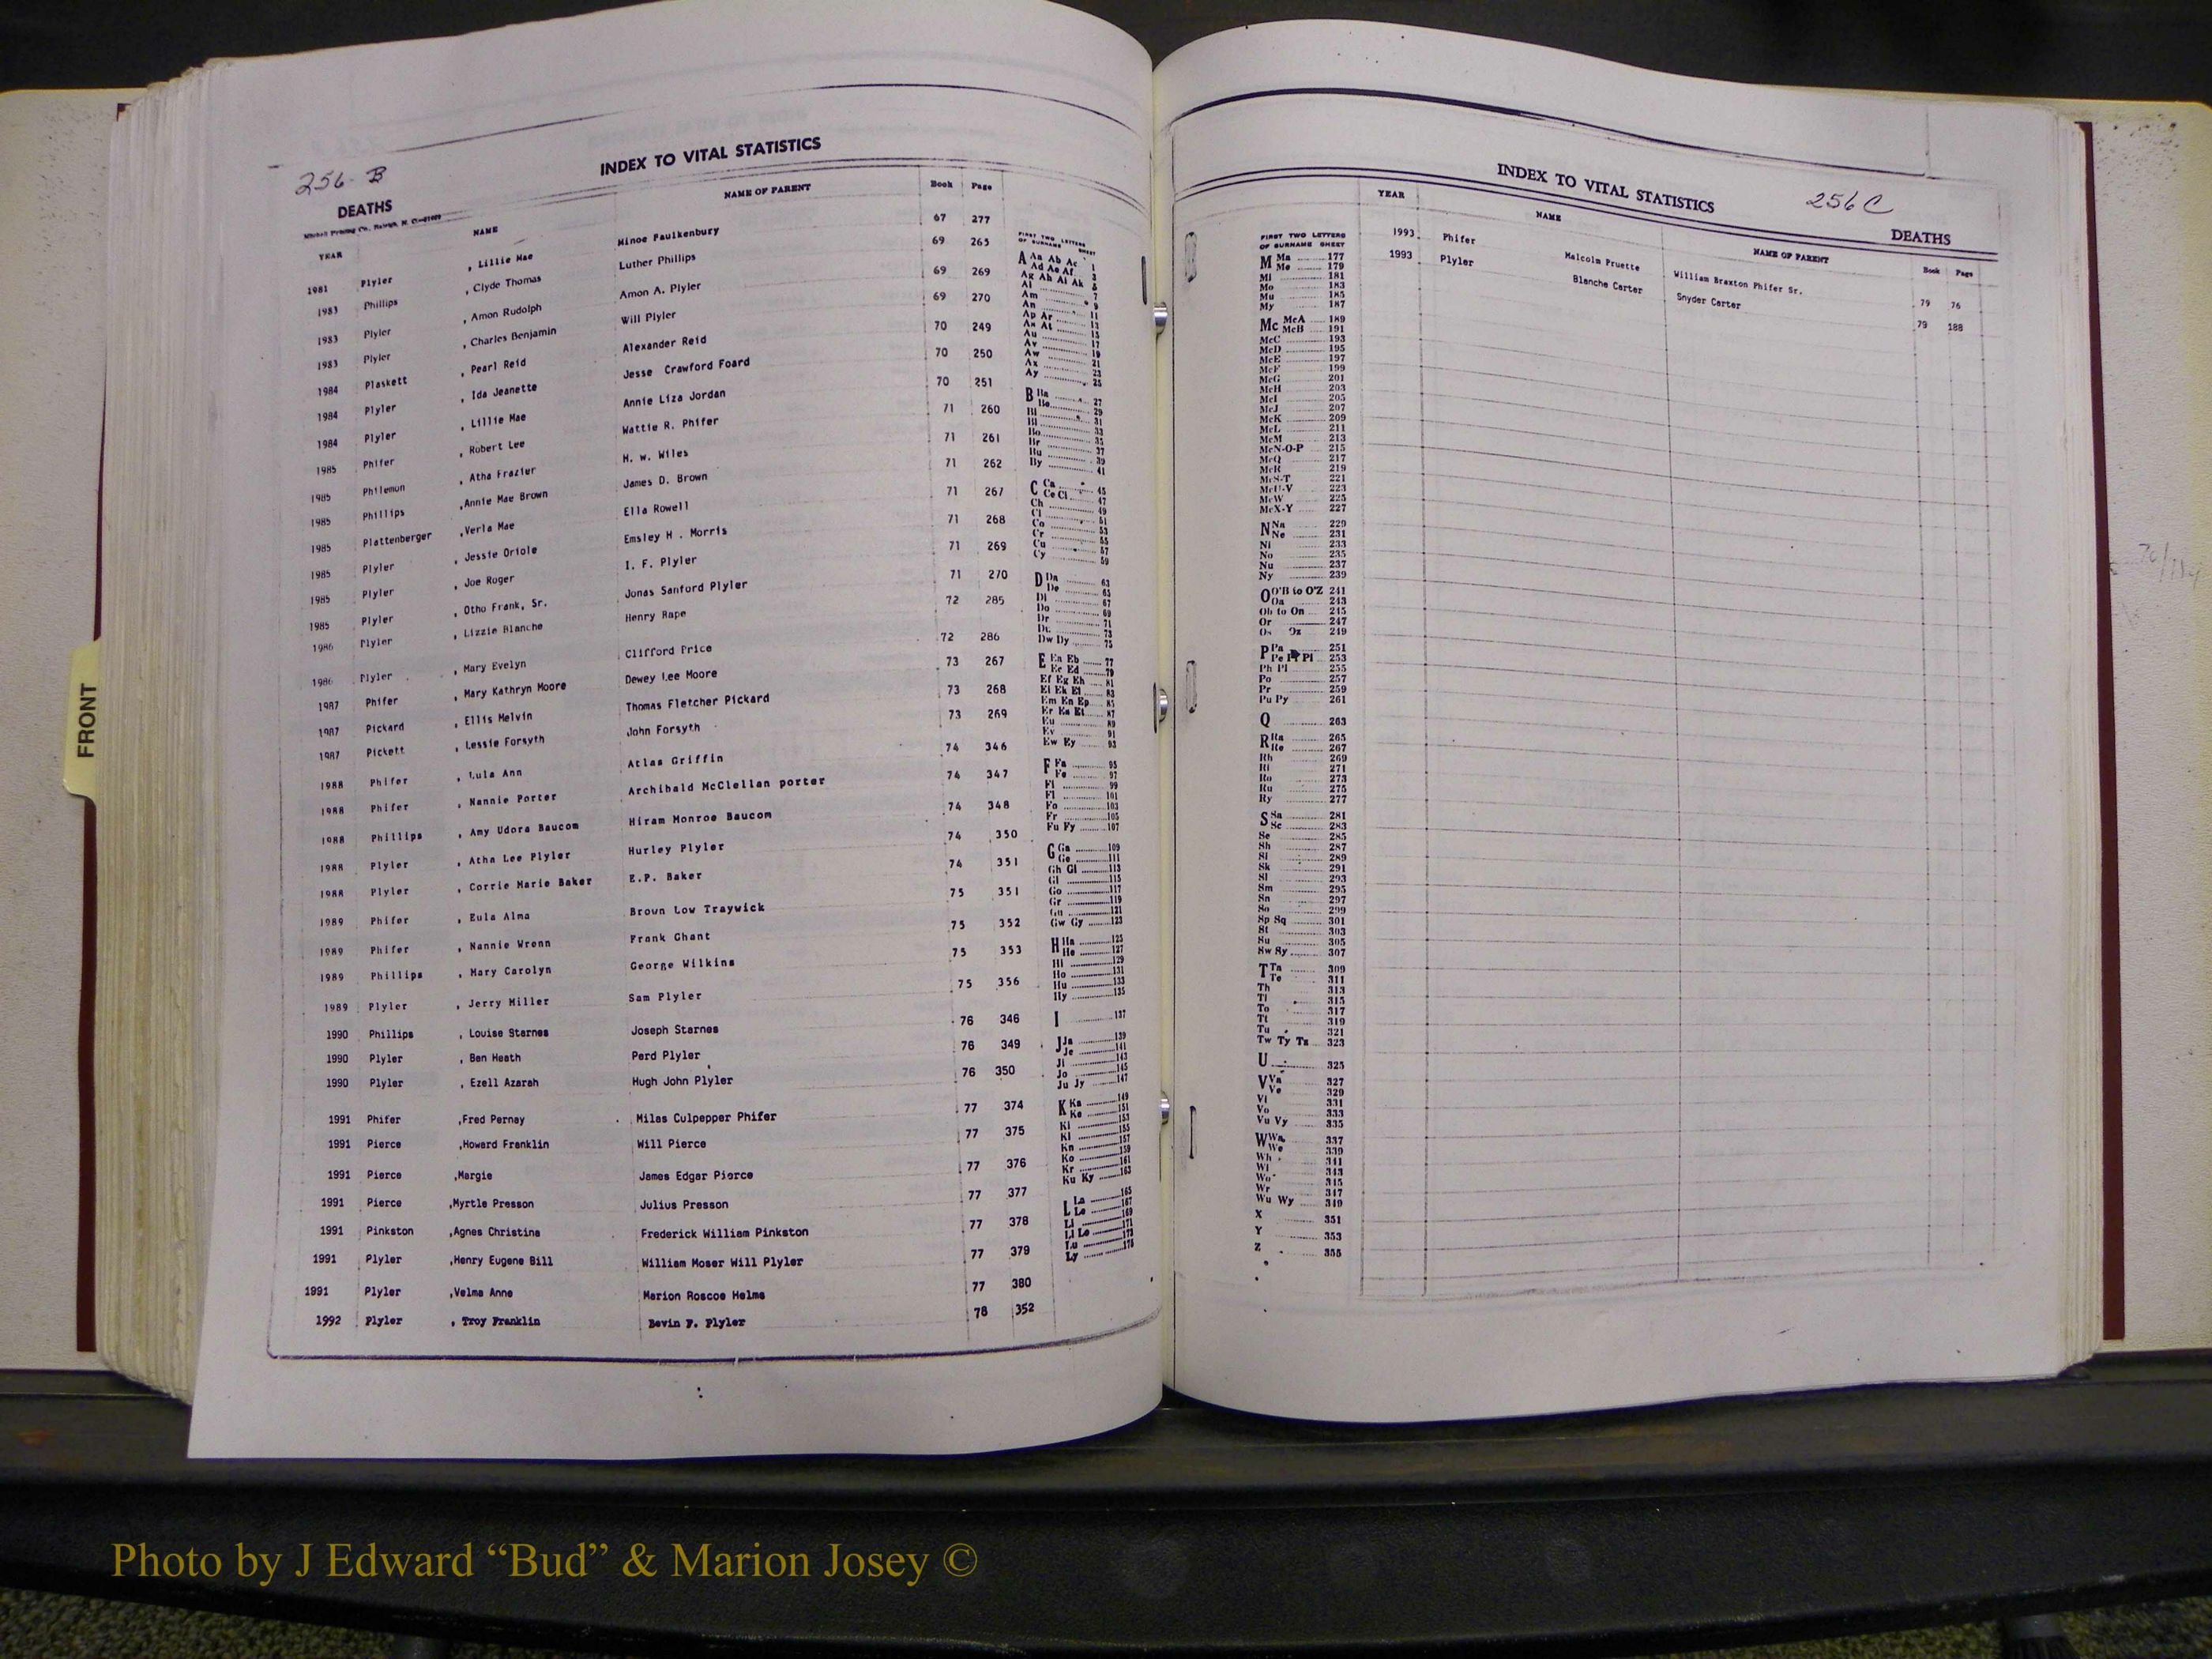 256-B
INDEX TO VITAL STATISTICS
DEATHS
Mitchell Printing Co., Raleigh, N. C.
YEAR NAME NAME OF PARENT Book Page
1981 Plyler , Lillie Mae Minoe Faulkenbury 67 277
1983 Phillips , Clyde Thomas Luther Phillips 69 265
1983 Plyler , Amon Rudolph Amon A. Plyler 69 269
1983 Plyler , Charles Benjamin Will Plyler 69 270
1984 Plaskett , Pearl Reid Alexander Reid 70 249
1984 Plyler , Ida Jeanette Jesse Crawford Foard 70 250
1984 Plyler , Lillie Mae Annie Liza Jordan 70 251
1985 Phifer , Robert Lee Wattie R. Phifer 71 260
1985 Philemon , Atha Frazier H. w. Wiles 71 261
1985 Phillips ,Annie Mae Brown James D. Brown 71 262
1985 Plattenberger ,Verla Mae Ella Rowell 71 267
1985 Plyler , Jessie Oriole Emsley H . Morris 71 268
1985 Plyler , Joe Roger I. F. Plyler 71 269
1985 Plyler , Otho Frank, Sr. Jonas Sanford Plyler 71 270
1986 Plyler , Lizzie Blanche Henry Rape 72 285
1986 Plyler , Mary Evelyn Clifford Price 72 286
1987 Phifer , Mary Kathryn Moore Dewey Lee Moore 73 267
1987 Pickard , Ellis Melvin Thomas Fletcher Pickard 73 268
1987 Pickett , Lessie Forsyth John Forsyth 73 269
1988 Phifer , Lula Ann Atlas Griffin 74 346
1988 Phifer , Nannie Porter Archibald McClellan porter 74 347
1988 Phillips , Amy Udora Baucom Hiram Monroe Baucom 74 348
1988 Plyler , Atha Lee Plyler Hurley Plyler 74 350
1988 Plyler , Corrie Marie Baker E.P. Baker 74 351
1989 Phifer , Eula Alma Brown Low Traywick 75 351
1989 Phifer , Nannie Wrenn Frank Ghant 75 352
1989 Phillips , Mary Carolyn George Wilkins 75 353
1989 Plyler , Jerry Miller Sam Plyler 75 356
1990 Phillips , Louise Starnes Joseph Starnes 76 346
1990 Plyler , Ben Heath Perd Plyler 76 349
1990 Plyler , Ezell Azarah Hugh John Plyler 76 350
1991 Phifer ,Fred Pernay Milas Culpepper Phifer 77 374
1991 Pierce ,Howard Franklin Will Pierce 77 375
1991 Pierce ,Margie James Edgar Pierce 77 376
1991 Pierce ,Myrtle Presson Julius Presson 77 377
1991 Pinkston ,Agnes Christina Frederick William Pinkston 77 378
1991 Plyler ,Henry Eugene Bill William Moser Will Plyler 77 379
1991 Plyler ,Velma Anne Marion Roscoe Helms 77 380
1992 Plyler , Troy Franklin Bevin F. Plyler 78 352
FIRST TWO LETTERS
OF SURNAME SHEET
A Aa Ab Ac 1
Ad Ae Af 3
Ag Ah Ai Ak 5
Al 7
Am 9
An 11
Ap Ar 13
As At 15
Au 17
Av 19
Aw 21
Ax 23
Ay 25
B Ba 27
Be 29
Bi 31
Bl 33
Bo 35
Br 37
Bu 39
By 41
C Ca 45
Ce Ci 47
Ch 49
Cl 51
Co 53
Cr 55
Cu 57
Cy 59
D Da 63
De 65
Di 67
Do 69
Dr 71
Du 73
Dw Dy 75
E Ea Eb 77
Ec Ed 79
Ef Eg Eh 81
Ei Ek El 83
Em En Ep 85
Er Es Et 87
Eu 89
Ev 91
Ew Ey 93
F Fa 95
Fe 97
Fi 99
Fl 101
Fo 103
Fr 105
Fu Fy 107
G Ga 109
Ge 111
Gh Gi 113
Gl 115
Go 117
Gr 119
Gu 121
Gw Gy 123
H Ha 125
He 127
Hi 129
Ho 131
Hu 133
Hy 135
I 137
J Ja 139
Je 141
Ji 143
Jo 145
Ju Jy 147
K Ka 149
Ke 151
Ki 153
Kl 155
Kn 157
Ko 159
Kr 161
Ku Ky 163
L La 165
Le 167
Li 169
Ll Lo 171
Lu 173
Ly 175
FRONT
INDEX TO VITAL STATISTICS
256C
DEATHS
YEAR NAME NAME OF PARENT Book Page
1993 Phifer Malcolm Pruette William Braxton Phifer Sr. 79 76
1993 Plyler Blanche Carter Snyder Carter 79 188
FIRST TWO LETTERS
OF SURNAME SHEET
M Ma 177
Me 179
Mi 181
Mo 183
Mu 185
My 187
Mc McA 189
McB 191
McC 193
McD 195
McE 197
McF 199
McG 201
McH 203
McI 205
McJ 207
McK 209
McL 211
McM 213
McN-O-P 215
McQ 217
McR 219
McS-T 221
McU-V 223
McW 225
McX-Y 227
N Na 229
Ne 231
Ni 233
No 235
Nu 237
Ny 239
O O'B to O'Z 241
Oa 243
Ob to On 245
Or 247
Os Oz 249
P Pa 251
Pe Pf Pl 253
Ph Pi 255
Po 257
Pr 259
Pu Py 261
Q 263
R Ra 265
Re 267
Rh 269
Ri 271
Ro 273
Ru 275
Ry 277
S Sa 281
Sc 283
Se 285
Sh 287
Si 289
Sk 291
Sl 293
Sm 295
Sn 297
So 299
Sp Sq 301
St 303
Su 305
Sw Sy 307
T Ta 309
Te 311
Th 313
Ti 315
To 317
Tr 319
Tu 321
Tw Ty Tz 323
U 325
V Va 327
Ve 329
Vi 331
Vo 333
Vu Vy 335
W Wa 337
We 339
Wh 341
Wi 343
Wo 345
Wr 347
Wu Wy 349
X 351
Y 353
Z 355
Photo by J Edward “Bud” & Marion Josey ©